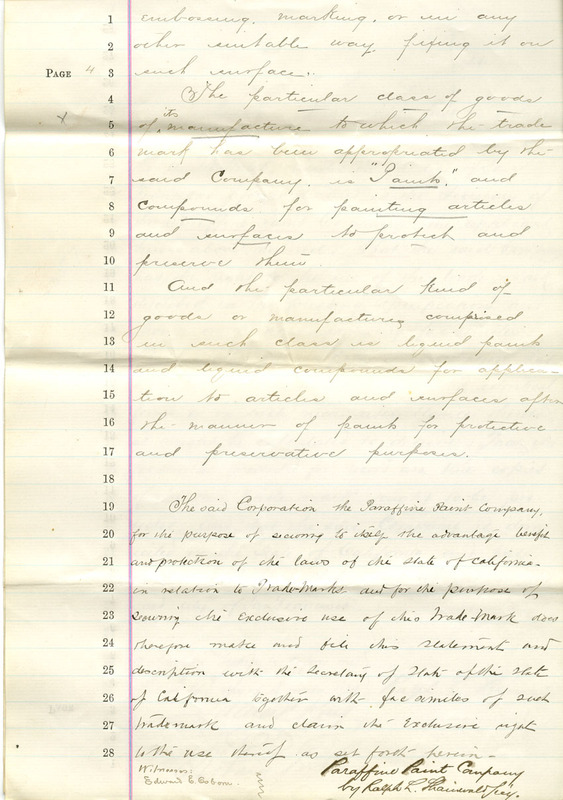 1 embossing, marking, or in any
2 other suitable way fixing it on
PAGE 4 3 such surface.
4 The particular class of goods
x 5 of its manufacture to which the trade
6 mark has been appropriated by the
7 said Company. is "Paints," and
8 Compounds for painting articles
9 and surfaces to protect and
10 preserve them.
11 And the particular kind of
12 goods or manufactures comprised
13 in such class is liquid paints
14 and liquid compounds for applica-
15 tion to articles and surfaces after
16 the manner of paints for protective
17 and preservative purposes.
18
19 The said Corporation the Paraffine Paint Company,
20 for the purpose of securing to itself the advantage benefit
21 and protection of the laws of the State of California
22 in relation to Trade-Marks and for the purpose of
23 securing the exclusive use of this Trade-Mark does
24 therefore make and file this statement and
25 description with the Secretary of State of the State
26 of California together with facsimiles of such
27 Trademark and claim the exclusive right
28 to the use thereof as set forth herein-
Witnesses: Paraffine Paint Company
Edward E. Osborn. by Ralph L. Shainwald